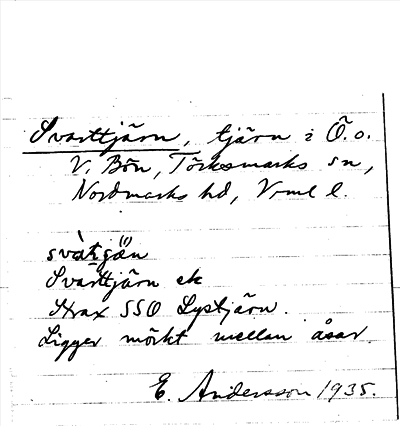 Svarttjärn, tjärn i Ö. o.
V. Bön, Törksmarks sn,
Nordmarks hd, Vrml l.
Svarttjärn ek
Strax SSO Lystjärn.
Ligger mörkt mellan åsar.
E. Andersson 1935.